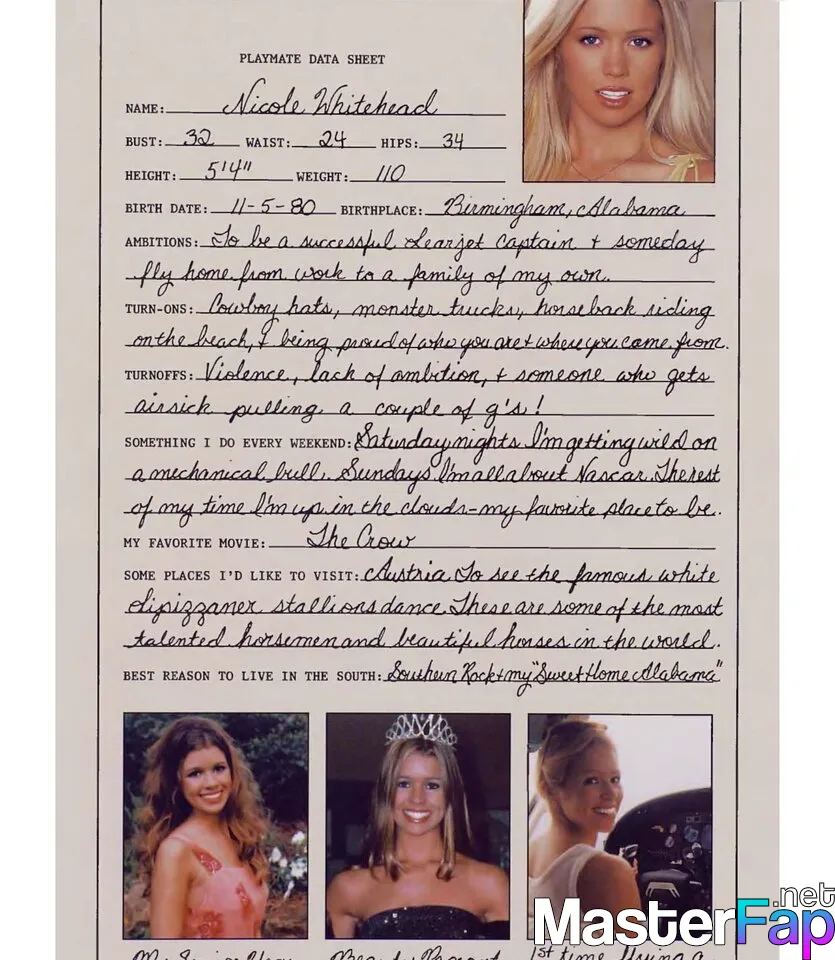 PLAYMATE DATA SHEET
NAME: Nicole Whitehead
BUST: 32 WAIST: 24 HIPS: 34
HEIGHT: 5'4" WEIGHT: 110
BIRTH DATE: 11-5-80 BIRTHPLACE: Birmingham, Alabama
AMBITIONS: To be a successful Learjet captain & someday
fly home from work to a family of my own.
TURN-ONS: Cowboy hats, monster trucks, horseback riding
on the beach, & being proud of who you are & where you come from.
TURNOFFS: Violence, lack of ambition, & someone who gets
airsick pulling a couple of g's!
SOMETHING I DO EVERY WEEKEND: Saturday nights I'm getting wild on
a mechanical bull. Sundays I'm all about Nascar. The rest
of my time I'm up in the clouds-my favorite place to be.
MY FAVORITE MOVIE: The Crow
SOME PLACES I'D LIKE TO VISIT: Austria To see the famous white
Lipizzaner stallions dance. These are some of the most
talented horsemen and beautiful horses in the world.
BEST REASON TO LIVE IN THE SOUTH: Southern Rock & my "Sweet Home Alabama"
1st time flying a
MasterFap.net